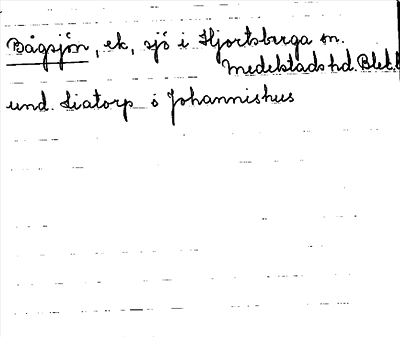 Bågsjön, ek, sjö i Hjortsberga sn.
Medelstads hd. Blek.
und. Liatorp o Johannishus